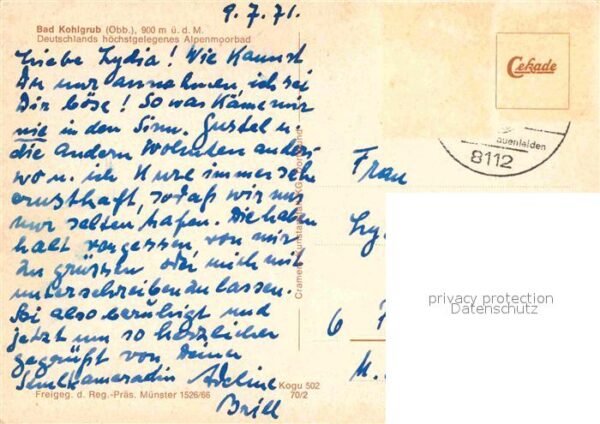 9.7.71.
Bad Kohlgrub (Obb.), 900 m ü. d. M.
Deutschlands höchstgelegenes Alpenmoorbad
Liebe Lydia! Wie kannst
Du nur annahmen, ich sei
Dir böse! So was käme mir
nie in den Sinn. Gustel u.
die andern wohnten anders-
wo u. ich Kure immer sehr
ernsthaft, sodaß wir uns
nur selten trafen. Die haben
halt vergessen von mir
zu grüssen oder mich mit
unterschreiben zu lassen.
Sei also beruhigt und
jetzt um so herzlicher
gegrüßt von Deiner
Schulkameradin Adeline
Brill
Freigeg. d. Reg.-Präs. Münster 1526/66
Kogu 502
70/2
Cekade
8112
Frau
Ly
6
privacy protection
Datenschutz